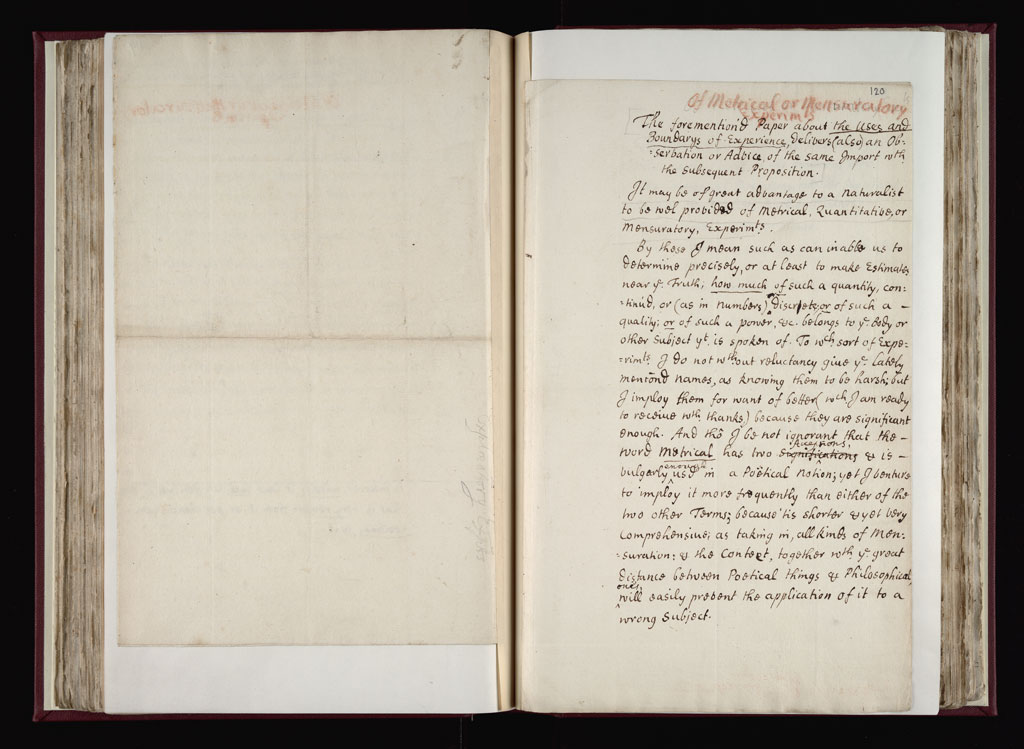 120
Of Metrical or Mensuratory
Experimts
The foremention'd Paper about the Uses and
Boundarys of Experience, delivers (also) an Ob-
=servation or Advice, of the same Import wth
the subsequent Proposition.
It may be of great advantage to a Naturalist
to be wel provided of Metrical, Quantitative, or
Mensuratory, Experimts.
By these I mean such as can inable us to
determine precisely, or at least to make Estimates
near ye Truth, how much of such a quantity, con=
=tinu'd, or (as in numbers) discrete; or of such a –
quality; or of such a power, &c. belongs to ye Body or
other Subject yt is spoken of. To wch sort of Expe=
=rimts I do not wthout reluctancy give ye lately
mencōnd names, as knowing them to be harsh; but
I imploy them for want of better (wch I am ready
to receive wth thanks) because they are significant
enough. And thô I be not ignorant that the –
word Metrical has two significations acceptions, & is –
vulgarly enough us'd in a Poëtical notion; yet I venture
to imploy it more frequently than either of the
two other Terms; because 'tis shorter & yet very
comprehensive; as taking in, all kinds of Men-
=suration: & the Context, together wth ye great
distance between Poetical things & Philosophical
ones, will easily prevent the application of it to a
wrong Subject.